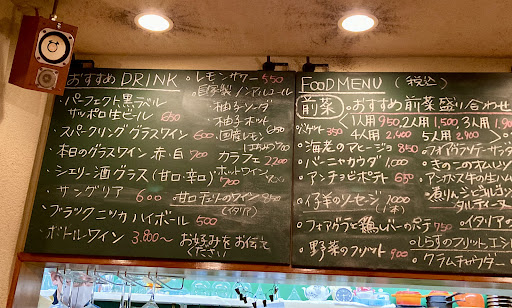 おすすめ DRINK
・パーフェクト黒ラベル
サッポロ生ビール 650
・スパークリンググラスワイン 600
・本日のグラスワイン 赤・白 700
・シェリー酒グラス(甘口・辛口) 700
・サングリア 600
・ブラックニッカ ハイボール 500
・ボトルワイン 3,800〜 お好みをお伝え
ください
・レモンサワー 550
・自家製ノンアルコール
・柚子ソーダ
・柚子ホット
・国産レモン
カラフェ 2,200
・ホットワイン 700
・甘口デザートのワイン
(イタリア)
FOOD MENU (税込)
前菜 ・おすすめ前菜盛り合わせ
1人用 950 2人用 1,500 3人用
4人用 2,400 5人用 2,900
・バゲット 350
・海老のアヒージョ 850
・バーニャカウダ 1,000
・アンチョビポテト 650
・仔羊のソーセージ 1,000
(1本)
・フォアグラと鶏レバーのパテ 750
・野菜のフリット 900
・きのこのオムレツ
・アンガス牛の生ハム
タルティーヌ
・イタリアの
・しらすのフリット
・クラムチャウダー